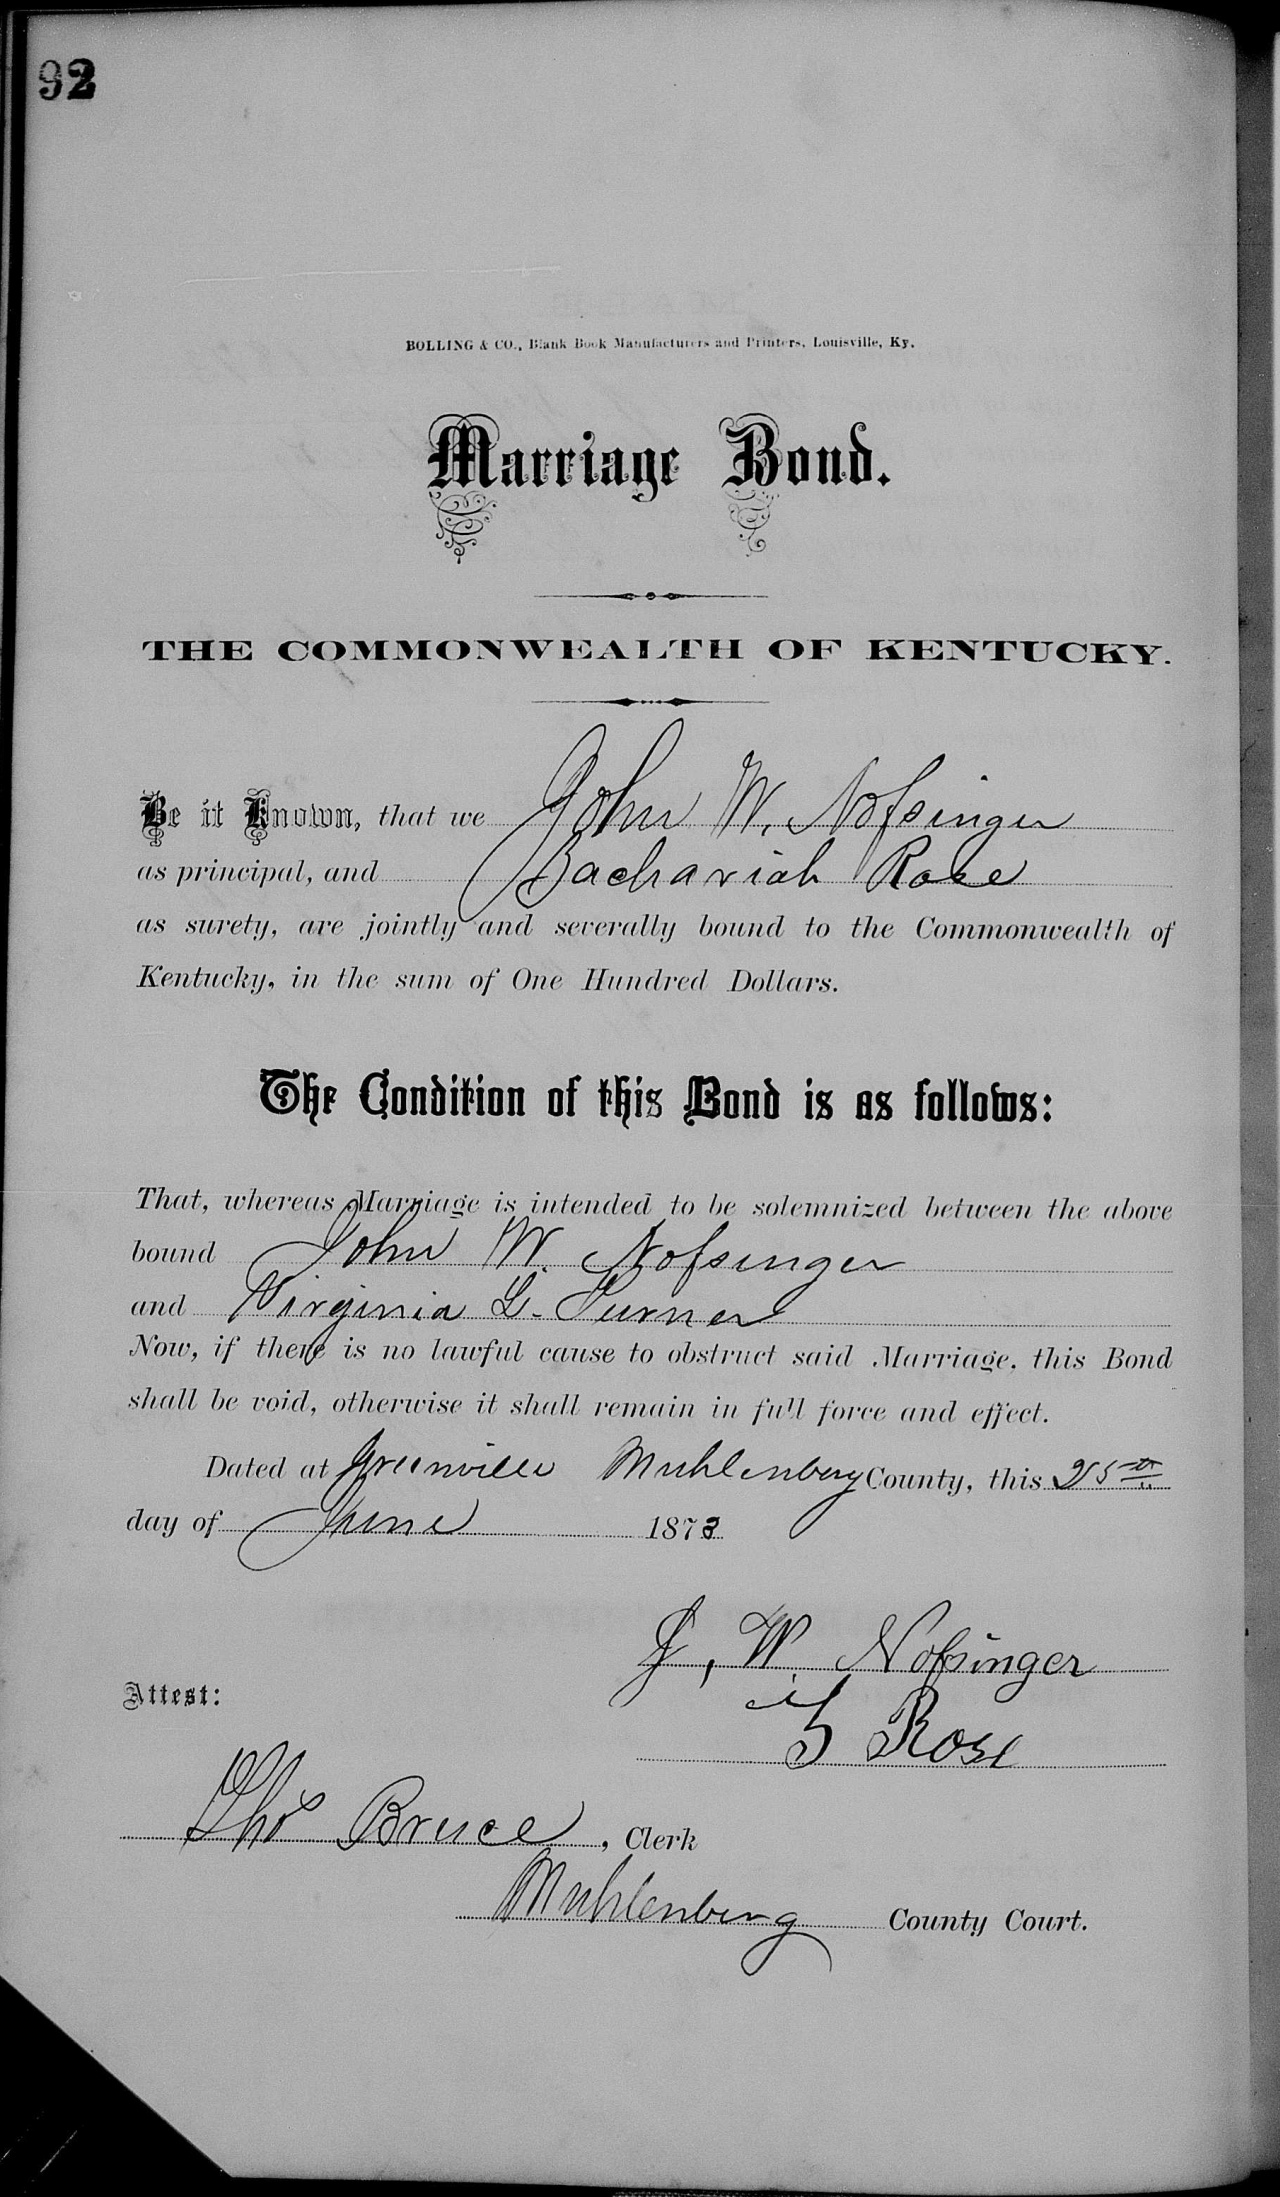 92
BOLLING & CO., Blank Book Manufacturers and Printers, Louisville, Ky.
Marriage Bond.
THE COMMONWEALTH OF KENTUCKY.
Be it Known, that we John W. Nofsinger
as principal, and Zachariah Rose
as surety, are jointly and severally bound to the Commonwealth of
Kentucky, in the sum of One Hundred Dollars.
The Condition of this Bond is as follows:
That, whereas Marriage is intended to be solemnized between the above
bound John W. Nofsinger
and Virginia L. Turner
Now, if there is no lawful cause to obstruct said Marriage, this Bond
shall be void, otherwise it shall remain in full force and effect.
Dated at Greenville Muhlenberg County, this 25th
day of June 1873
J, W. Nofsinger
Attest:
Z Rose
Thos Bruce, Clerk
Muhlenberg County Court.